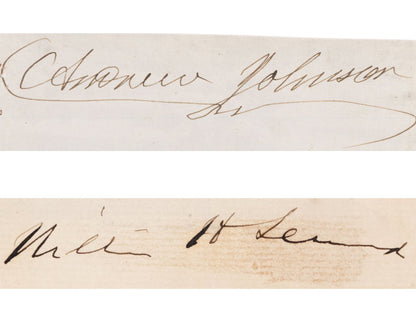 Andrew Johnson
William H Seward